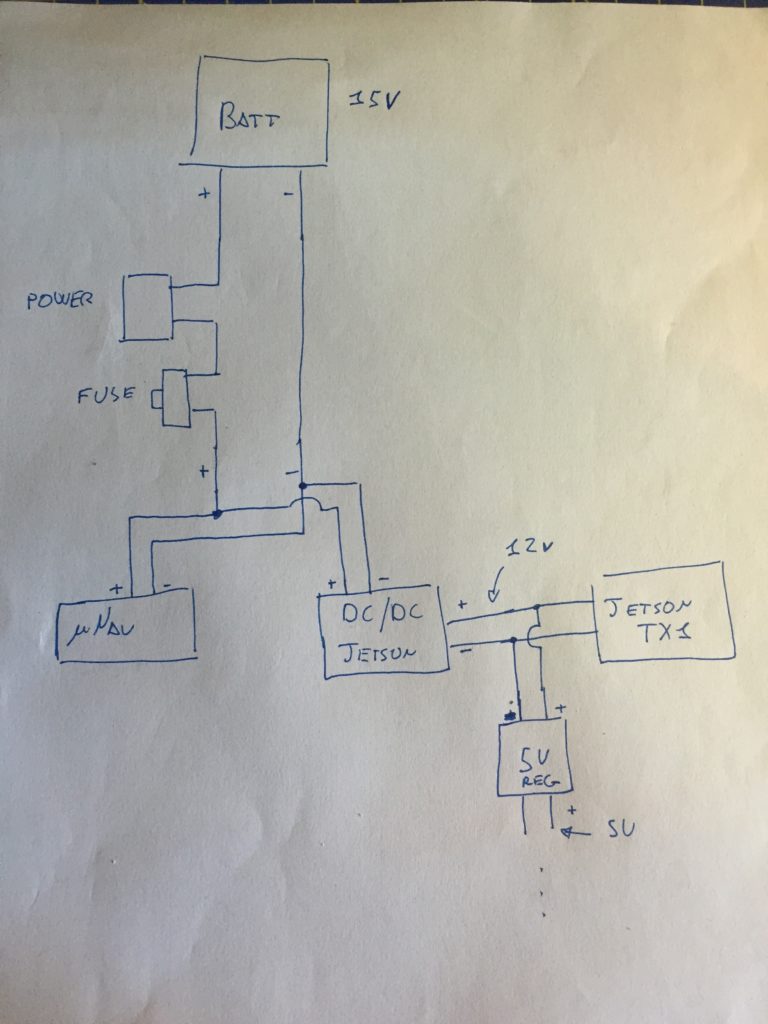 BATT
15V
+ -
POWER
FUSE
+ -
12V
+ -
µNAV
+ -
DC/DC
JETSON
+
-
JETSON
TX1
+
5V
REG
+
5V